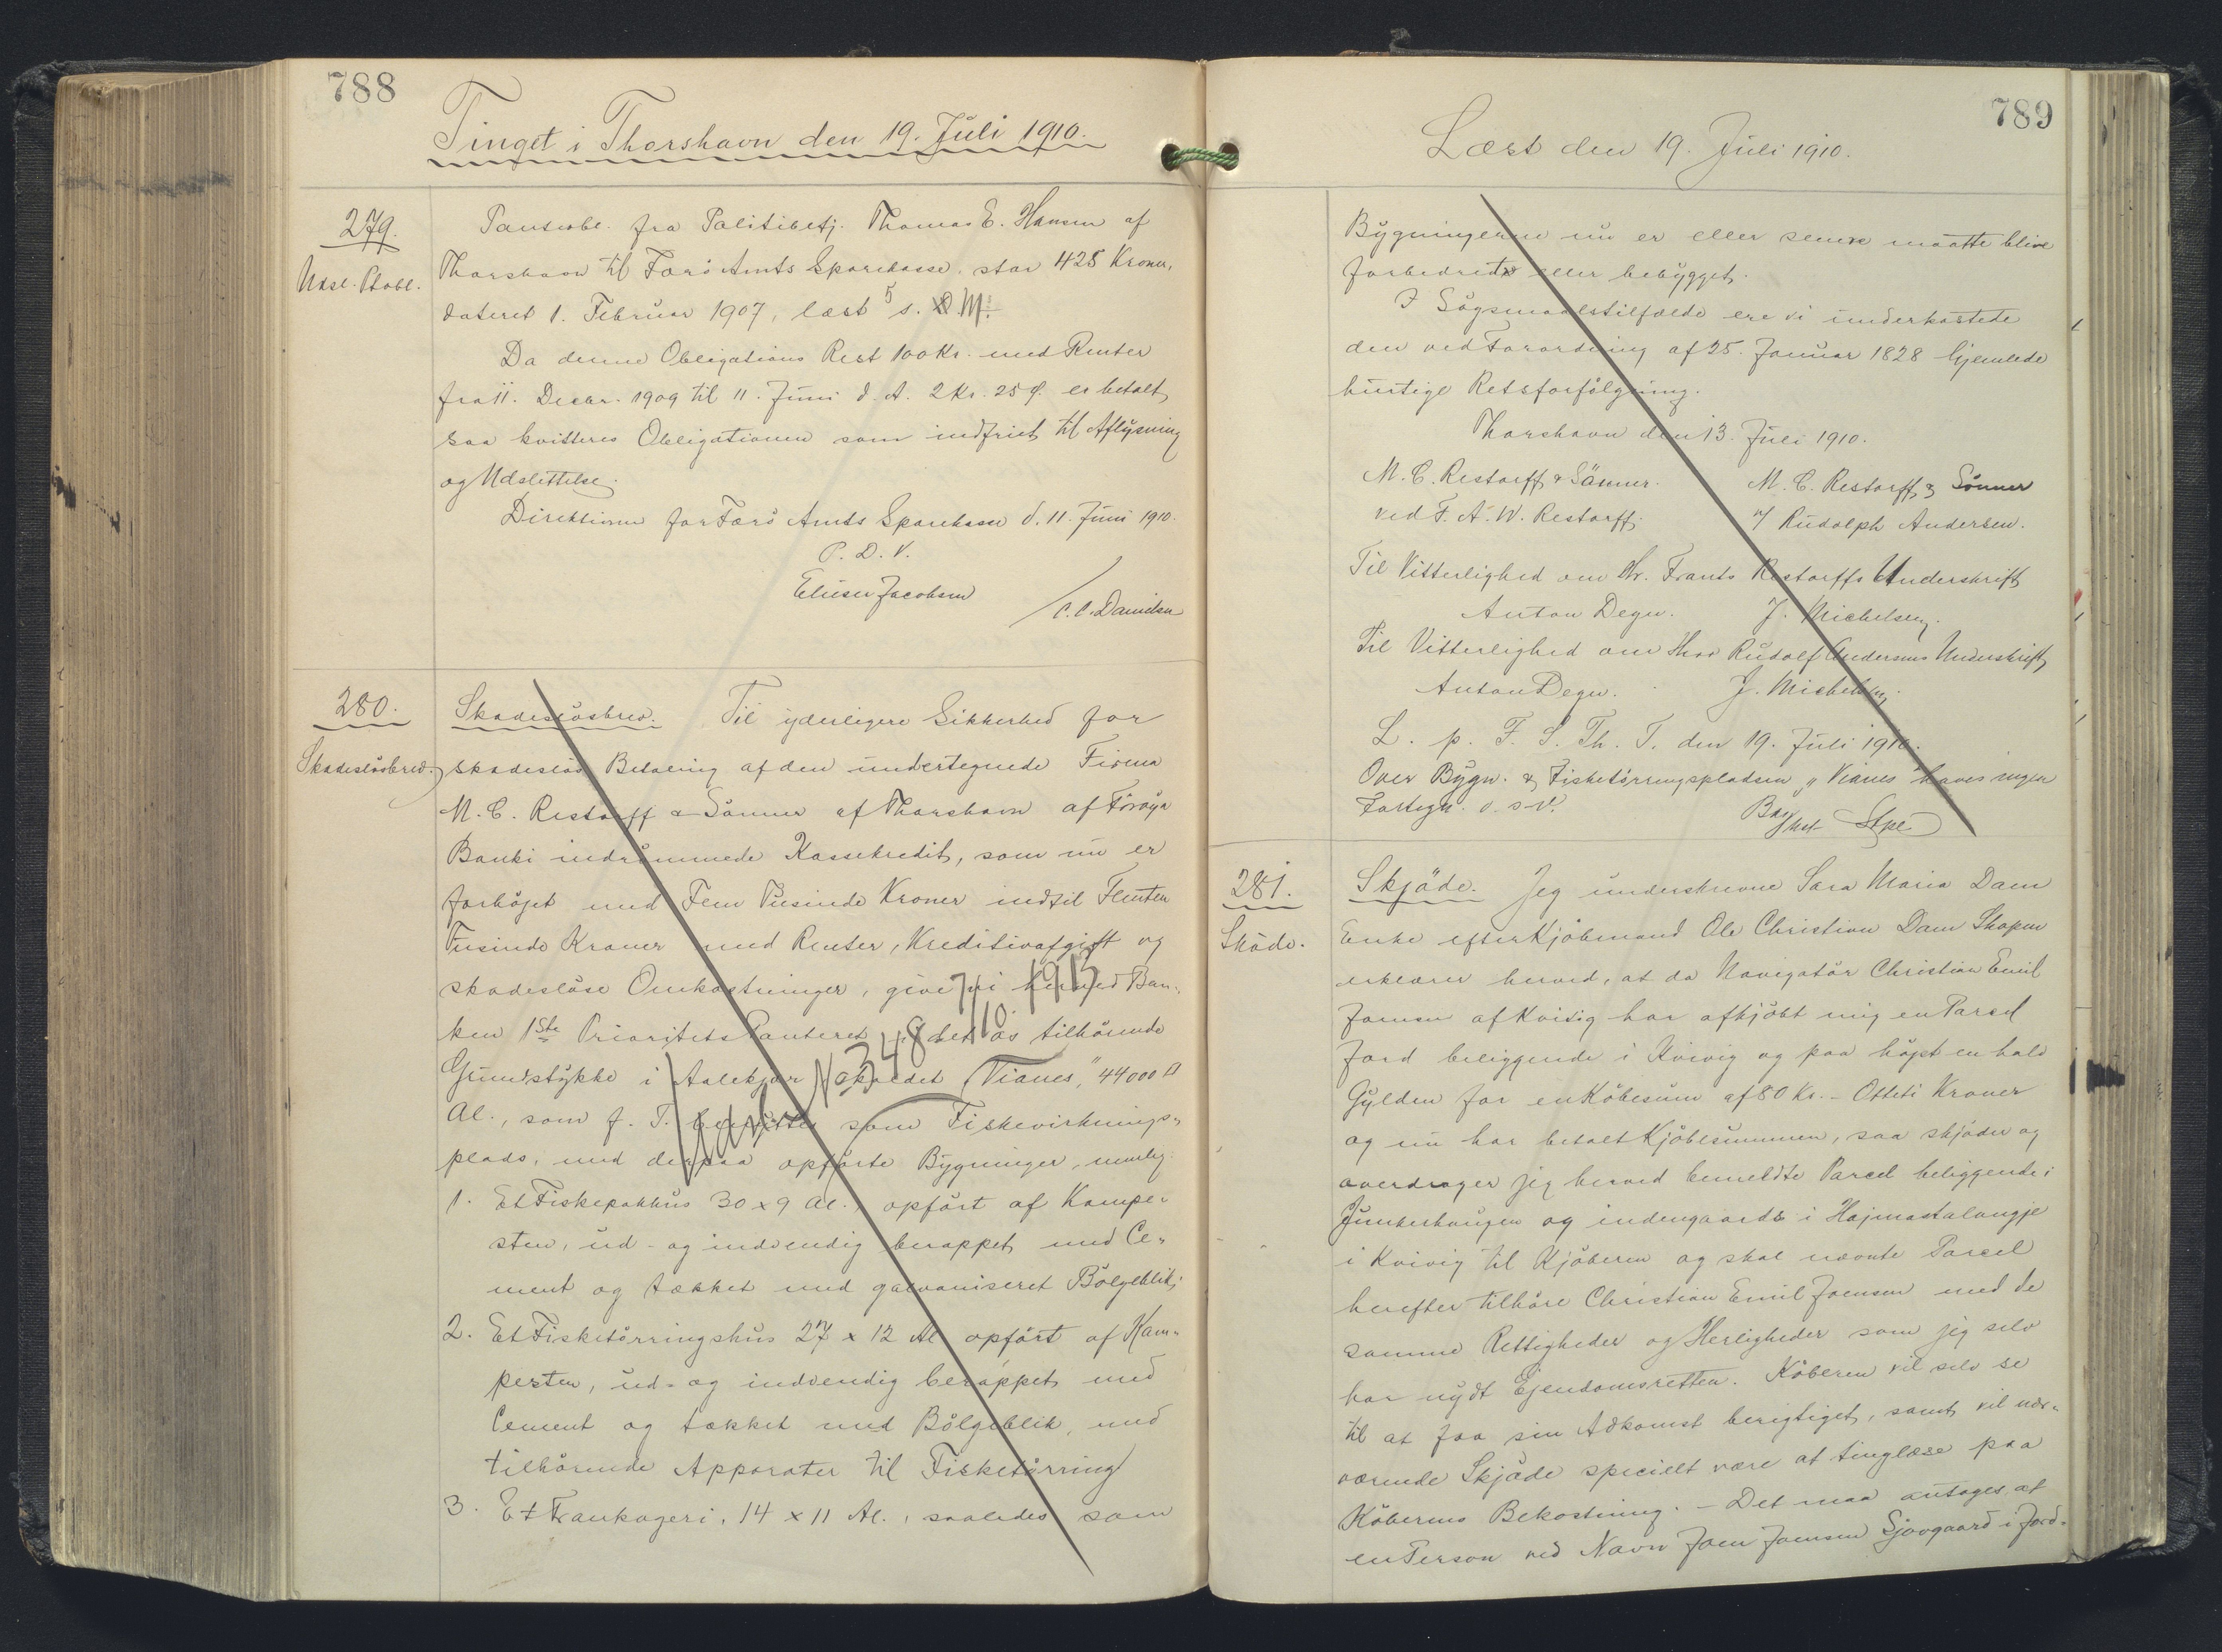 788
Tinget i Thorshavn den 19. Juli 1910.
279.
Udsl. Pobl.
Pantobl. fra Politibetj. Thomas E. Hansen af
Thorshavn til Færö Amts Sparekasse, stor 425 Kroner,
dateret 1. Februar 1907, læst 5 s. M.
Da denne Obligations Rest 100 Kr. med Renter
fra 11. Decbr. 1909 til 11. Juni d. A. 2 Kr. 25 Ø. er betalt,
saa kvitteres Obligationen som indfriet til Aflysning
og Udslettelse.
Direktionen for Færö Amts Sparekasse d. 11. Juni 1910.
P. D. V.
Elieser Jacobsen
C. C. Danielsen
280.
Skadeslösbrev.
Skadeslösbrev. Til yderligere Sikkerhed for
skadeslös Betaling af den undertegnede Firma
M. C. Restorff & Sönner af Thorshavn af Föroya
Banki indrömmede Kassekredit, som nu er
forhöjet med Fem Tusinde Kroner indtil Femten
Tusinde Kroner med Renter, Kreditivafgift og
skadeslöse Omkostninger, give vi herved Ban-
ken 1ste Prioritets Panteret i det os tilhörende
Grundstykke i Aalekjær kaldet "Vianes", 44000 □
Al., som f. T. benyttes som Fiskevirknings-
plads, med derpaa opförte Bygninger, nemlig
7/1 1913
No 348/10
1. Et Fiskepakhus 30 x 9 Al., opfört af Kampe-
sten, ud- og indvendig berappet med Ce-
ment og tækket med galvaniseret Bölgeblik;
2. Et Fisketörringshus 27 x 12 Al opfört af Kam-
pesten, ud- og indvendig berappet med
Cement og tækket med Bölgeblik, med
tilhörende Apparater til Fisketörring
3. Et Trankogeri, 14 x 11 Al., saaledes som
789
Læst den 19. Juli 1910.
Bygningerne nu er eller senere maatte blive
forbedrede eller bebygget.
I Sögsmaalstilfælde ere vi underkastede
den ved Forordning af 25. Januar 1828 hjemlede
hurtige Retsforfölgning.
Thorshavn den 13. Juli 1910.
M. C. Restorff & Sönner. M. C. Restorff & Sönner
ved F. A. W. Restorff. v/ Rudolph Andersen.
Til Vitterlighed om Hr. Frants Restorffs Underskrift
Anton Degn. J. Michelsen.
Til Vitterlighed om Herr Rudolf Andersens Underskrift,
Anton Degn. J. Michelsen.
L. p. F. S. Th. T. den 19. Juli 1910.
Over Bygn. & Fisketörringspladsen "Vianes" haves ingen
Fortegn. o. s. v.
281.
Sköde.
Skjöde. Jeg underskrevne Sara Maria Dam
Enke efter Kjöbmand Ole Christian Dam Skopen
erklærer herved, at da Navigatör Christian Emil
Joensen af Kvivig har afkjöbt mig en Parcel
Jord beliggende i Kvivig og paa höjst en halv
Gylden for en Köbesum af 80 Kr. - Otteti Kroner
og nu har betalt Kjöbesummen, saa skjöder og
overdrager jeg herved bemeldte Parcel beliggende i
Junkerhaugen og indengaards i Hajmastalangje
i Kvivig til Kjöberen og skal nævnte Parcel
herefter tilhöre Christian Emil Joensen med de
samme Rettigheder og Herligheder som jeg selv
har nydt Ejendomsretten. Köberen vil selv se
til at faa sin Adkomst berigtiget, samt vil nær-
værende Skjöde specielt være at tinglæse paa
Köberens Bekostning. - Det maa antages, at
en Person ved Navn Joen Joensen Sjovgaard i Jord-